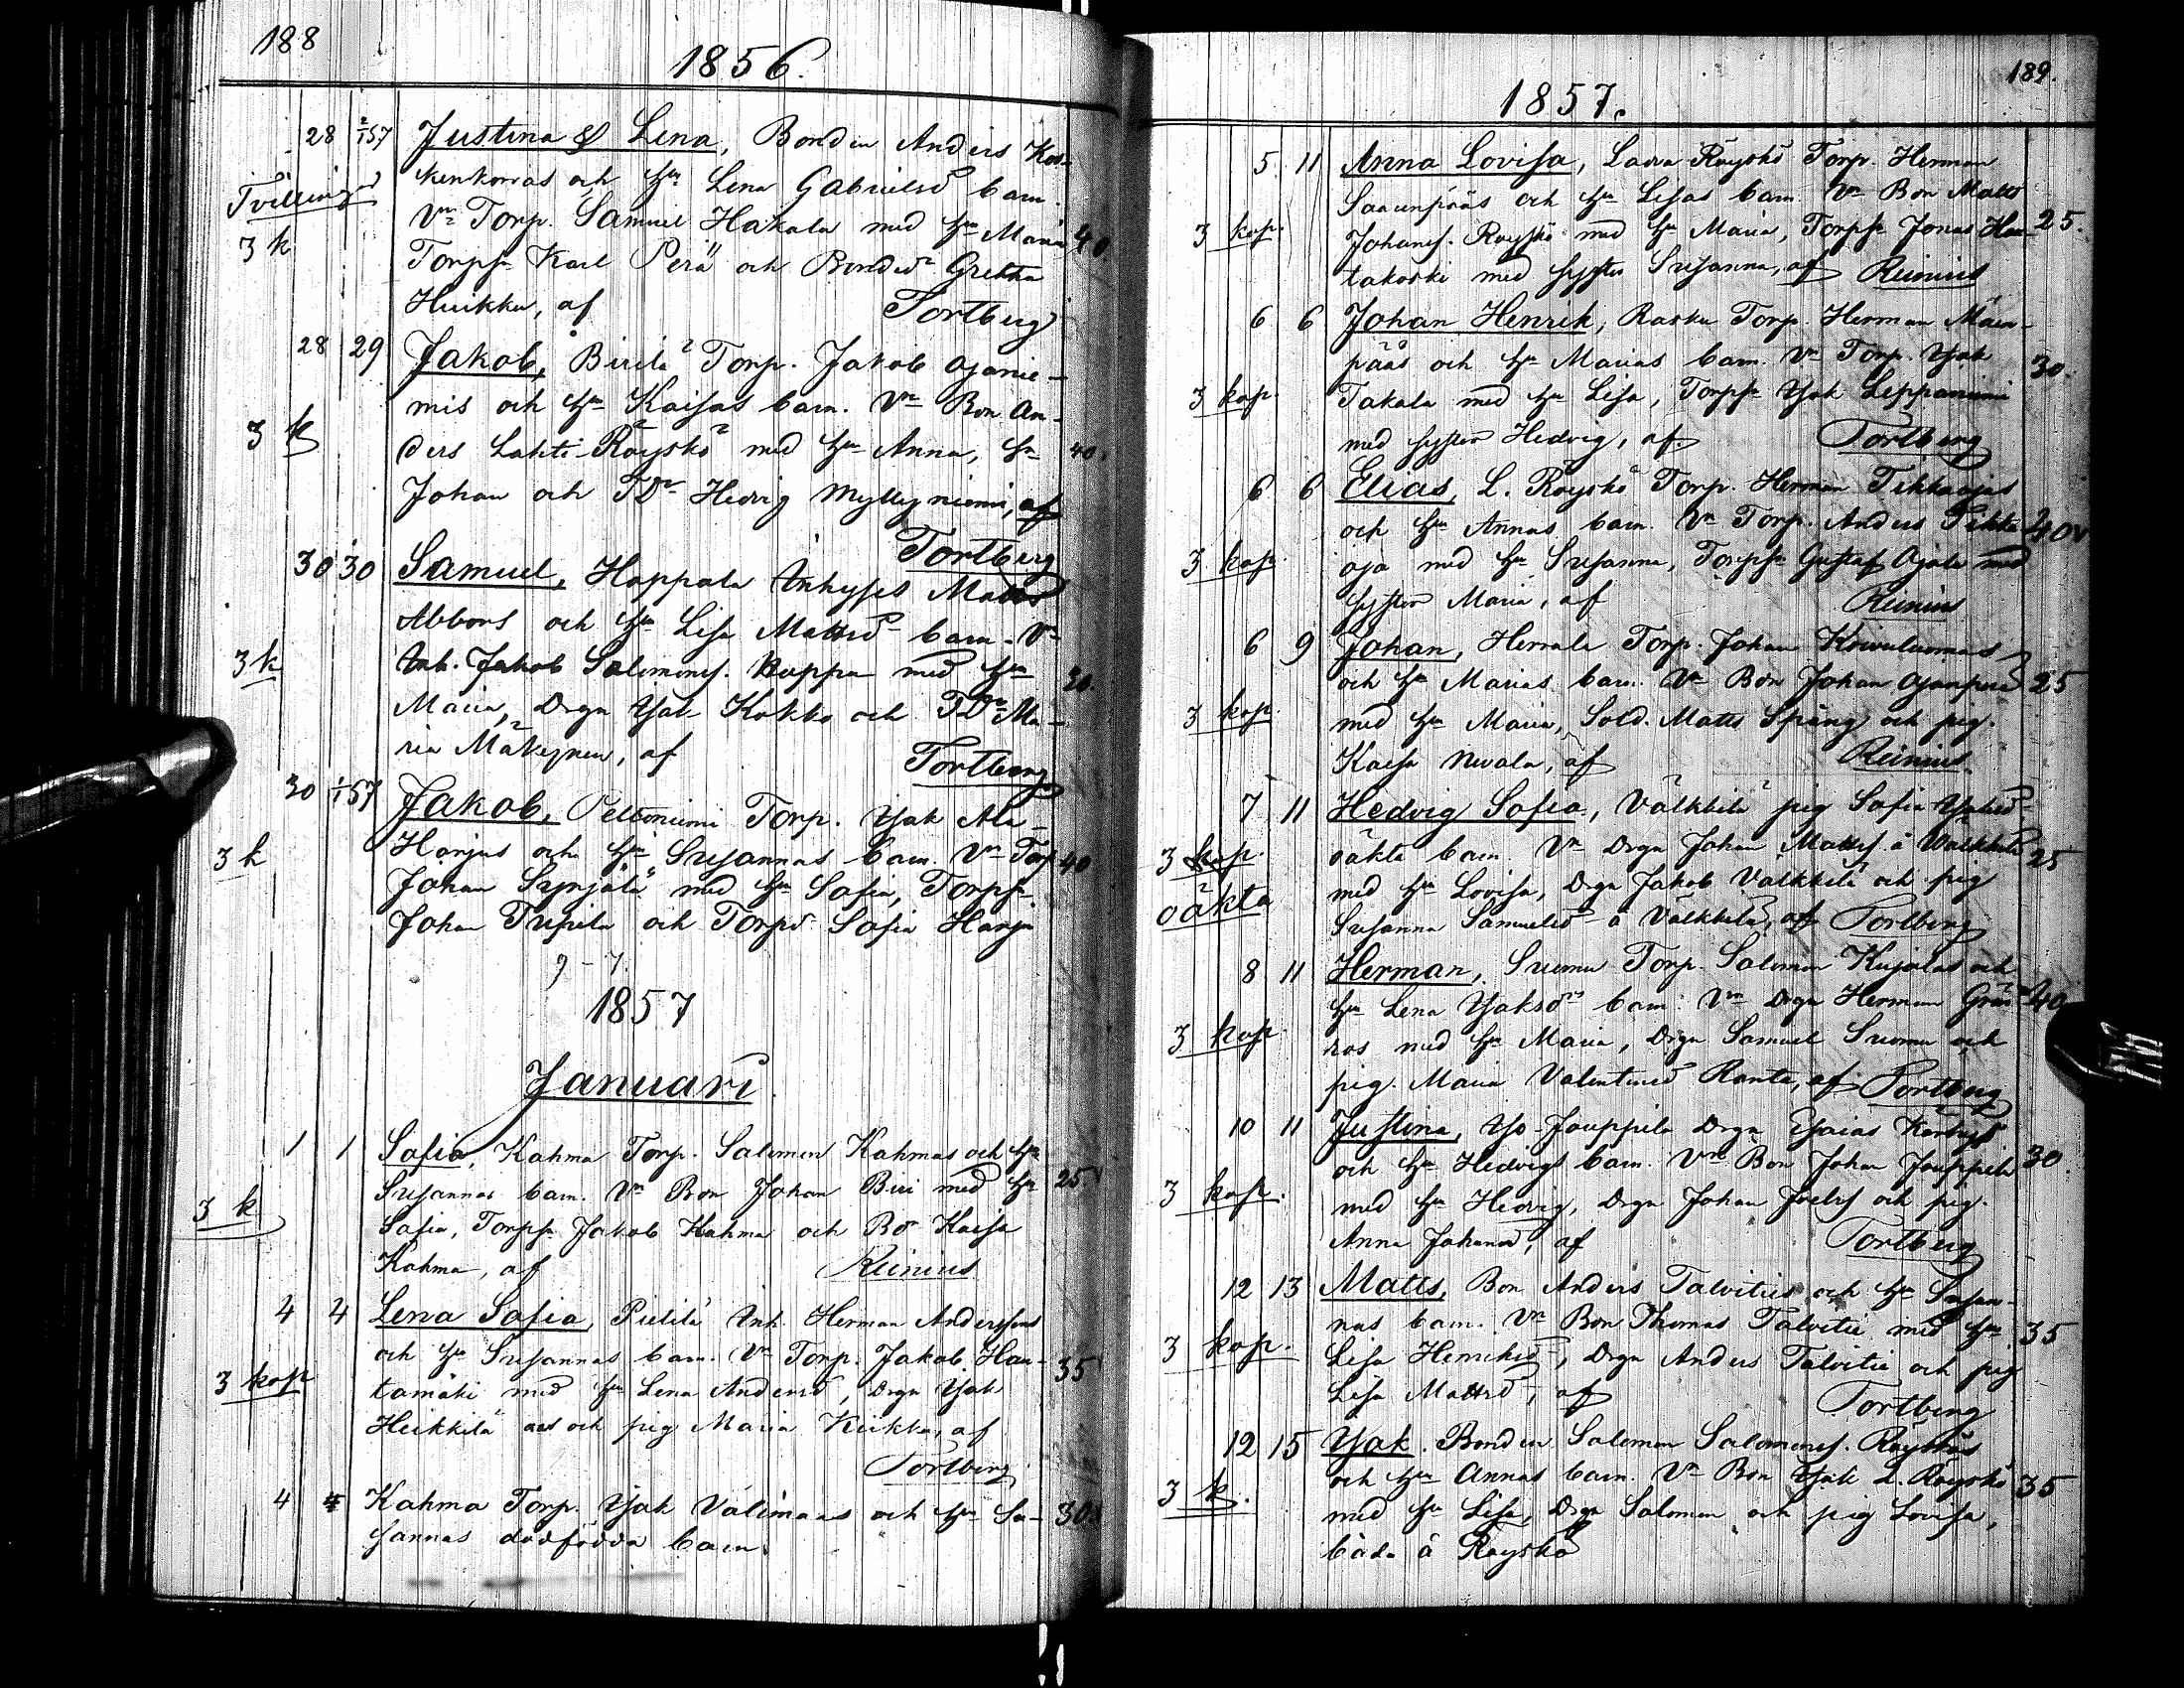 188
1856.
28 2/1 57 Justina & Lena, Bonden Anders Kos-
Tvillingar kenkorvas och hu Lena Gabrielsd barn.
3 k Vn Torp. Samuel Hakala med hu Maria 40.
Torpss Karl Perä och Bonded Gretha
Huikku, af Tortberg
28 29 Jakob, Birilä Torp. Jakob Ojanie-
mis och hu Kaisas barn. Vn Bon An-
3 k ders Lahti-Röyskö med hu Anna, 40.
Johan och TDr Hedvig Myllyniemi, af
Tortberg
30 30 Samuel, Hoppala Inhyses Matts
Abbors och hu Lisa Mattsd barn. Vn
3 k Inh. Jakob Salomons. Huppa med hu 30.
Maria, Drgn Isak Kokko och TDr Ma-
ria Mäkynen, af Tortberg
30 1/1 57 Jakob, Peltoniemi Torp. Isak Ala-
3 k Harjus och hu Susannas barn. Vn Torp 40
Johan Syrjälä med hu Sofia, Torpss.
Johan Tupila och Torpd Sofia Harju
9 - 7.
1857
Januari
1 1 Sofia, Kahma Torp. Salomon Kahmas och hu
Susannas barn. Vn Bon Johan Biri med hu 25
3 k Sofia, Torpss Jakob Kahma och Bd Kaisa
Kahma, af Reinius
4 4 Lena Sofia, Pietilä Inh. Herman Anderssons
och hu Susannas barn. Vn Torp. Jakob Hau- 35
3 kop tamäki med hu Lena Andersd, Drgn Isak
Heikkilä och pig Maria Kiikka, af
Tortberg
4 4 Kahma Torp. Isak Välimaas och hu Su- 30
sannas dödfödda barn.
189.
1857.
5 11 Anna Lovisa, Laura Röyskö Torp. Herman
Saarenpääs och hu Lisas barn. Vn Bon Matts
3 kop. Johanss. Röyskö med hu Maria, Torpss Jonas Hau- 25.
takoski med syster Susanna, af Reinius
6 6 Johan Henrik, Rasku Torp. Herman Mäen-
pääs och hu Marias barn. Vn Torp. Isak 30.
3 kop. Takala med hu Lisa, Torpss Isak Leppaniemi
med syster Hedvig, af Tortberg
6 6 Elias, L. Röyskö Torp. Herman Tikkaojas
och hu Annas barn. Vn Torp. Anders Tikka- 40
3 kop. oja med hu Susanna, Torpss Gustaf Ojala med
syster Maria, af Reinius
6 9 Johan, Herrala Torp. Johan Koivuluomas
och hu Marias barn. Vn Bon Johan Ojanperä 25
3 kop. med hu Maria, Sold. Matts Spång och pig.
Kaisa Nevala, af Reinius.
7 11 Hedvig Sofia, Välkkilä pig Sofia Isaksd.
3 kop. oäkta barn. Vn Drgn Johan Matts. å Wälkkilä 25
oäkta med hu Lovisa, Drgn Jakob Välkkilä och pig
Susanna Samuelsd å Välkkilä, af Tortberg
8 11 Herman, Suomu Torp. Salomon Kujalas och
hu Lena Isaksds barn. Vn Drgn Herman Grän- 40
3 kop. ros med hu Maria, Drgn Samuel Suomu och
pig. Maria Valentinsd Ranta, af Tortberg
10 11 Justina, Iso-Jouppila Drgn Esaias
och hu Hedvigs barn. Vn Bon Johan Jouppila 30.
3 kop. med hu Hedvig, Drgn Johan Joels. och pig.
Anna Johansd, af Tortberg
12 13 Matts, Bon Anders Talvities och hu Susan-
nas barn. Vn Bon Thomas Talvitie med hu 35
3 kop. Lisa Henriksd, Drgn Anders Talvitie och pig
Lisa Mattsd, af Tortberg
12 15 Isak. Bonden Salomon Salomons. Röyskös
och hu Annas barn. Vn Bon Isak L. Röyskö 35
3 k. med hu Lisa, Drgn Salomon och pig Lovisa,
båda å Röyskö